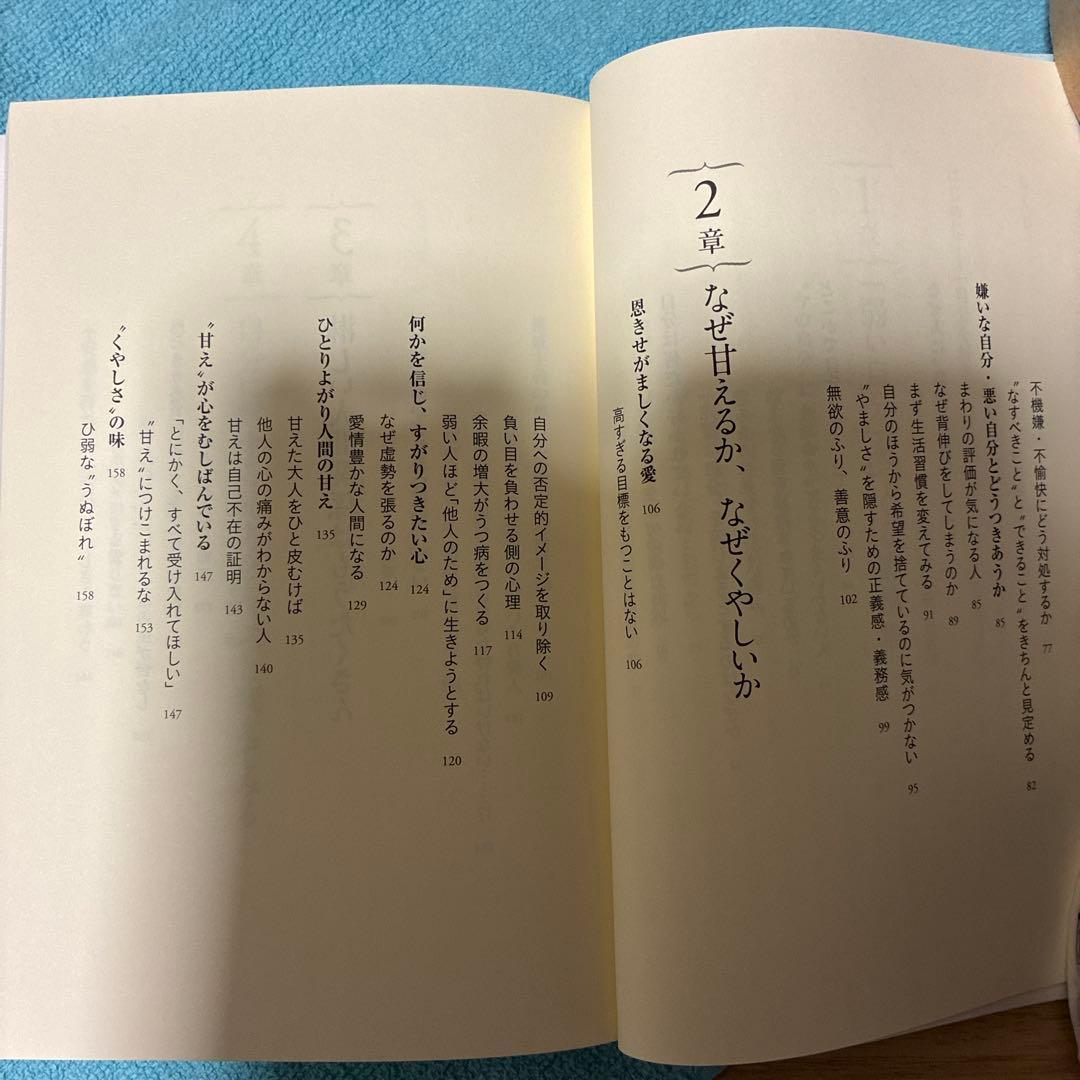 不機嫌・不愉快にどう対処するか 77
〝なすべきこと〟と〝できること〟をきちんと見定める 82
嫌いな自分・悪い自分とどうつきあうか 85
まわりの評価が気になる人 85
なぜ背伸びをしてしまうのか 89
まず生活習慣を変えてみる 91
自分のほうから希望を捨てているのに気がつかない 95
〝やましさ〟を隠すための正義感・義務感 99
無欲のふり、善意のふり 102
2章 なぜ甘えるか、なぜくやしいか
恩きせがましくなる愛 106
高すぎる目標をもつことはない 106
自分への否定的イメージを取り除く 109
負い目を負わせる側の心理 114
余暇の増大がうつ病をつくる 117
弱い人ほど「他人のため」に生きようとする 120
何かを信じ、すがりつきたい心 124
なぜ虚勢を張るのか 124
愛情豊かな人間になる 129
ひとりよがり人間の甘え 135
甘えた大人をひと皮むけば 135
他人の心の痛みがわからない人 140
甘えは自己不在の証明 143
〝甘え〟が心をむしばんでいる 147
「とにかく、すべて受け入れてほしい」 147
〝甘え〟につけこまれるな 153
〝くやしさ〟の味 158
ひ弱な〝うぬぼれ〟 158